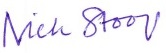 Nick Stoop